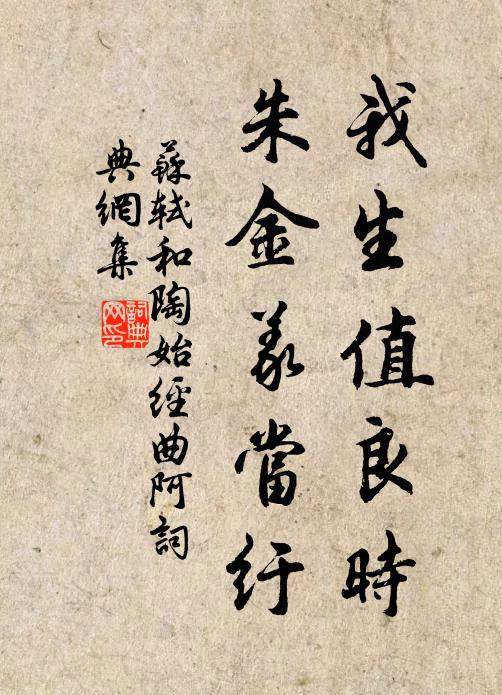 我生值良時
朱金義當紆
蘇軾和陶始經曲阿詞
典網集
詞典
网印